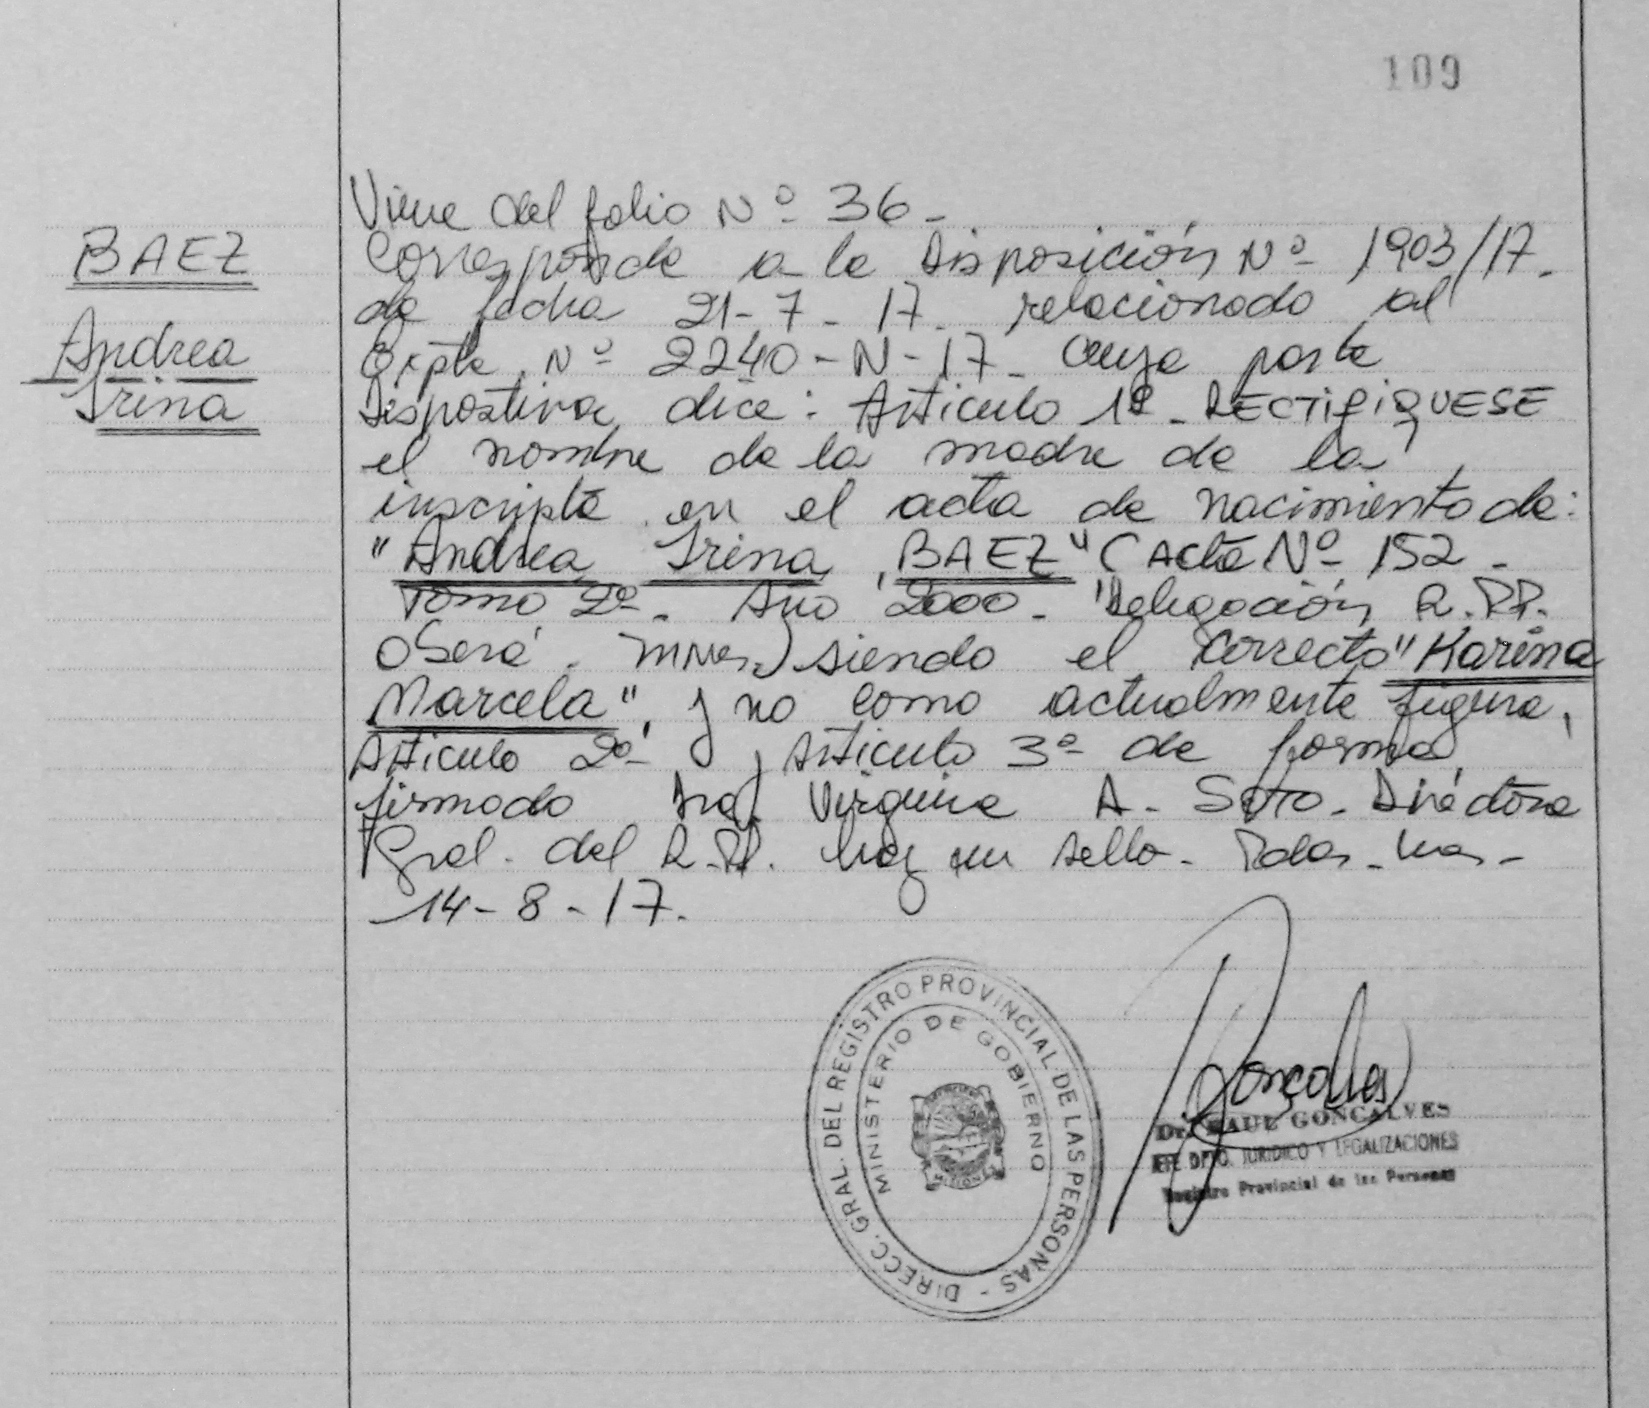 109
BAEZ
Andrea
Irina
Viene del folio Nº 36-
Corresponde a la Disposición Nº 1903/17-
de fecha 21-7-17- relacionado al
Expte. Nº 2240-N-17- Cuya parte
Dispositiva dice: Articulo 1º- RECTIFIQUESE
el nombre de la madre de la
inscripta en el acta de nacimiento de:
"Andrea Irina BAEZ" (Acta Nº 152-
Tomo 2º- Año 2000- Delegación R.PP.
Oberá. Mnes.) siendo el correcto "Karina
Marcela", y no como actualmente figura,
Articulo 2º y Articulo 3º de forma
firmado Virginia A. Soto- Directora
Gral. del R.PP. hay un sello- Pdas-Mnes-
14-8-17.
DIRECC. GRAL. DEL REGISTRO PROVINCIAL DE LAS PERSONAS -
MINISTERIO DE GOBIERNO
Dr. RAUL GONCALVES
JEFE DPTO. JURIDICO Y LEGALIZACIONES
Registro Provincial de las Personas